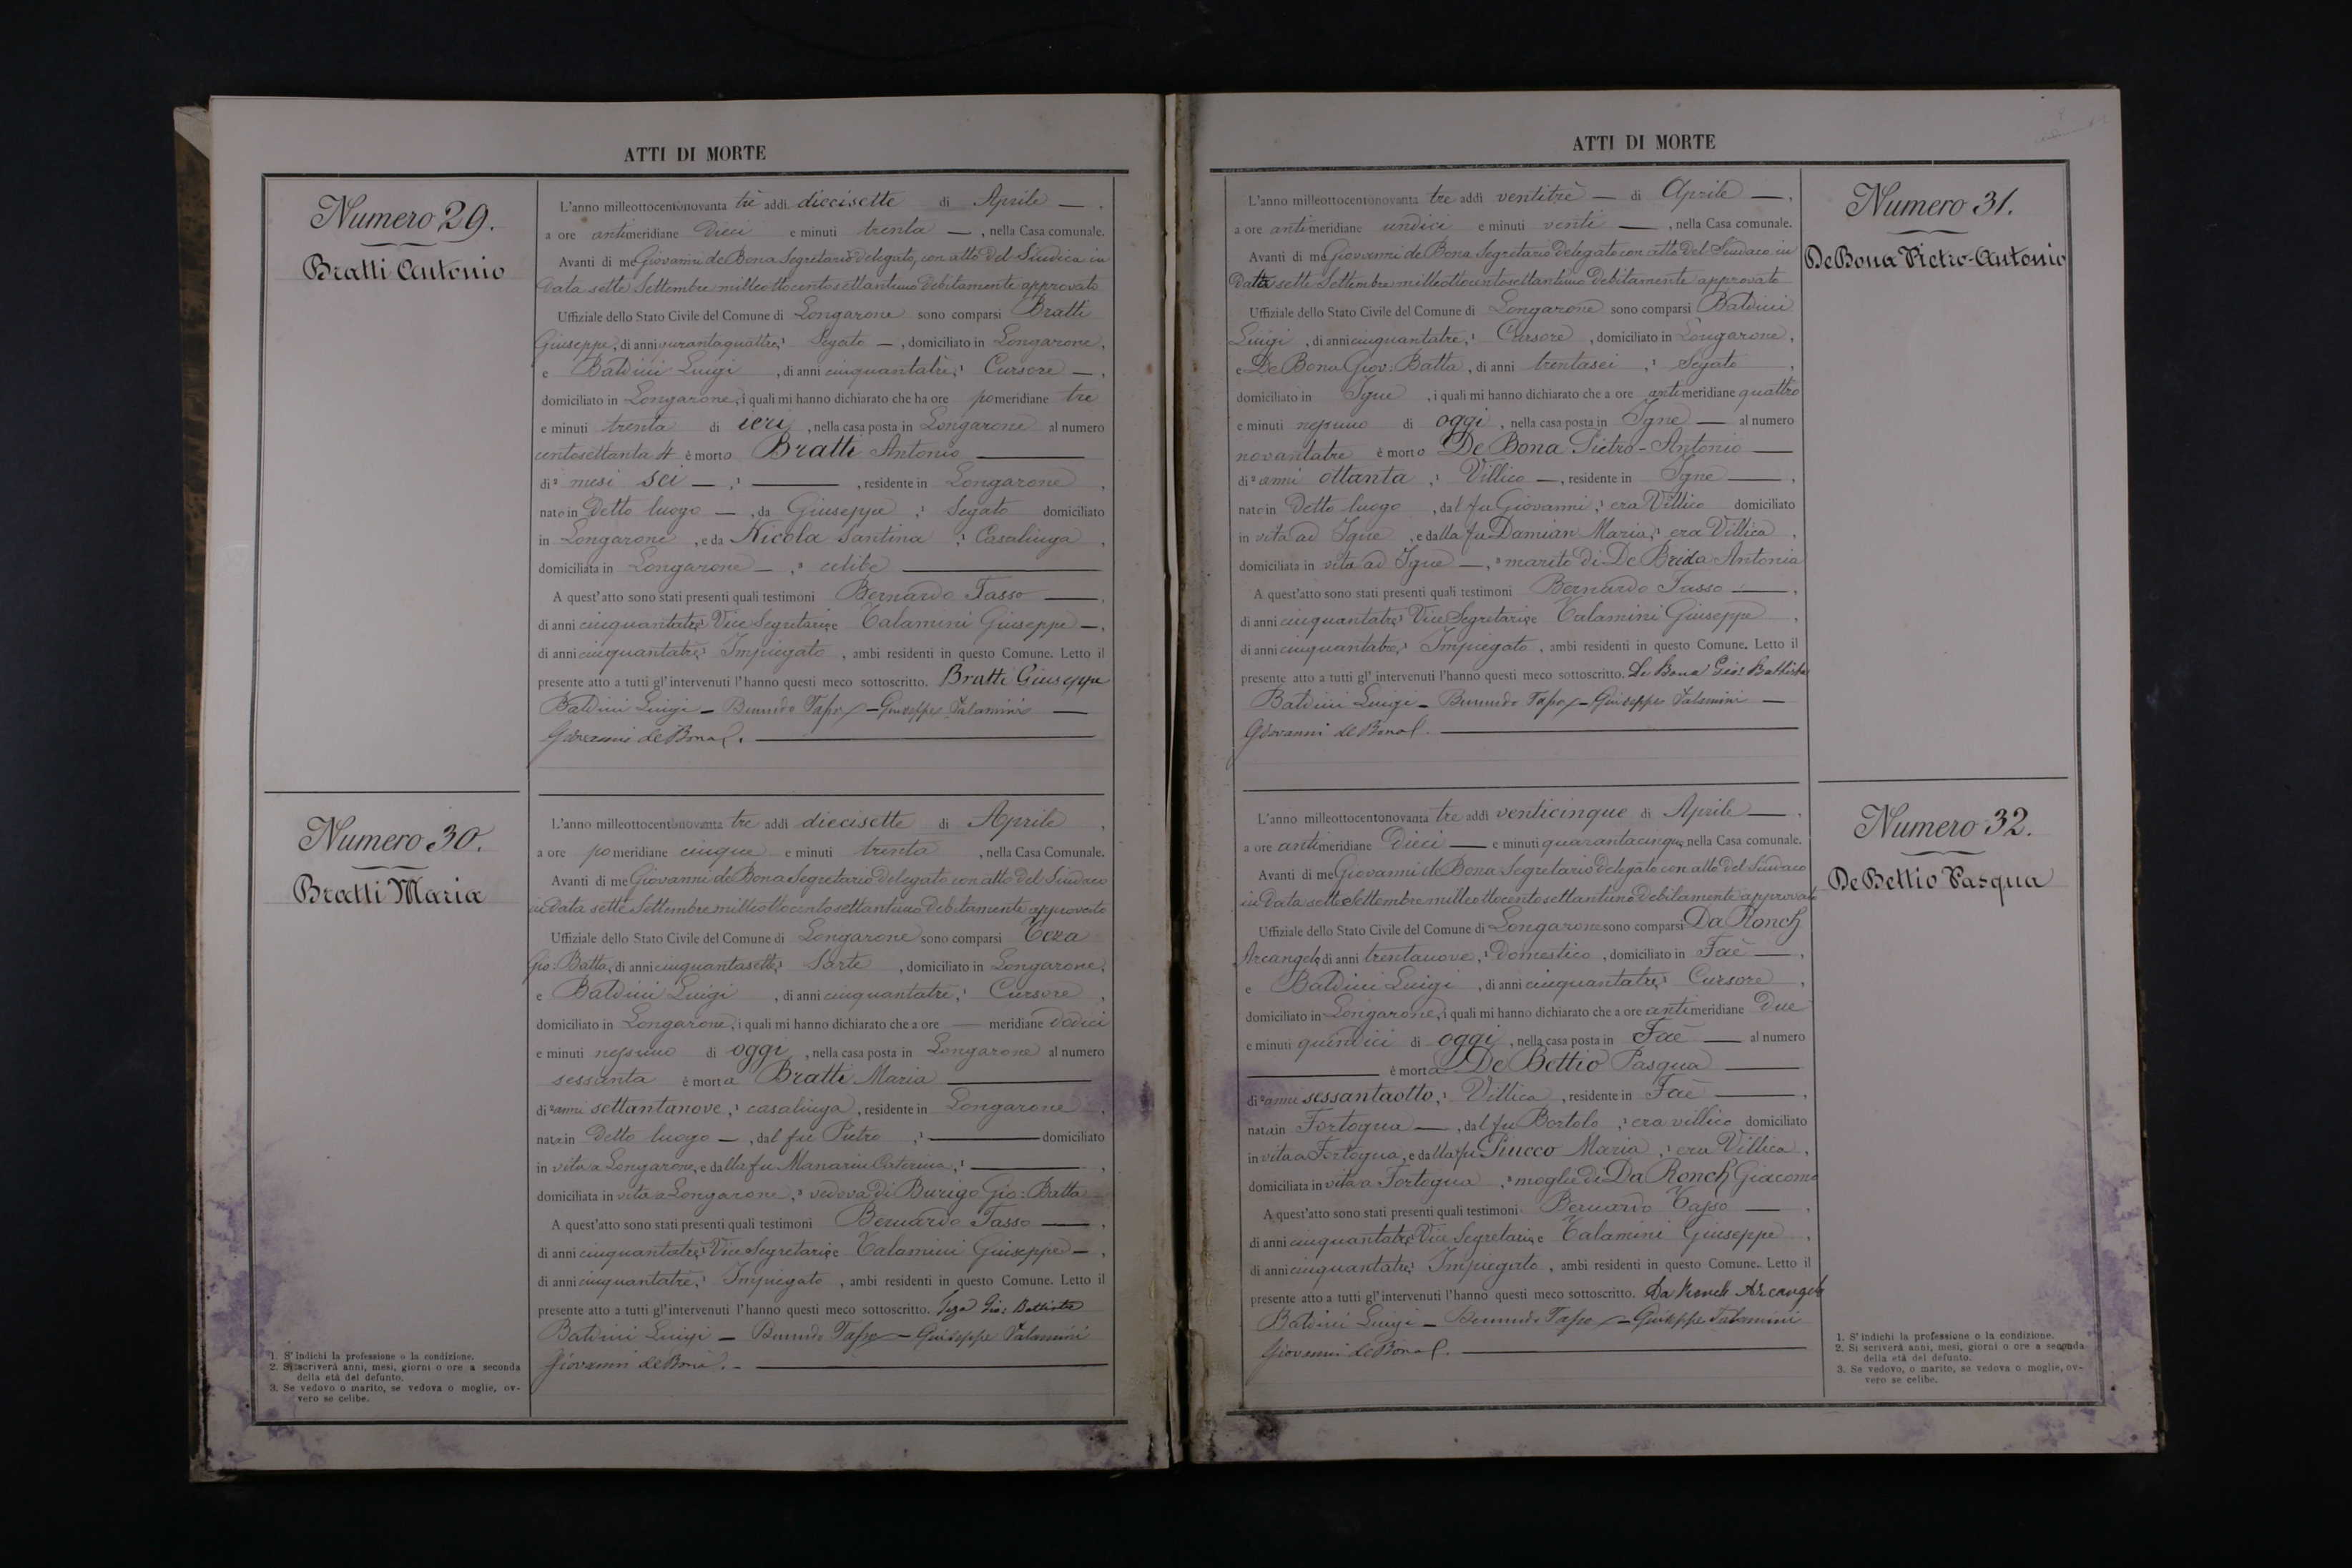 ATTI DI MORTE
Numero 29.
Bratti Antonio
L'anno millottocentonovanta tre addì diecisette di Aprile —,
a ore antimeridiane dieci e minuti trenta —, nella Casa comunale.
Avanti di me Giovanni de Bona Segretario delegato, con atto del Sindica in
data sette Settembre milleottocentosettantuno debitamente approvato
Uffiziale dello Stato Civile del Comune di Longarone sono comparsi Bratti
Giuseppe, di anni quarantaquattro,¹ Segato —, domiciliato in Longarone,
e Baldini Luigi, di anni cinquantatrè,¹ Cursore —,
domiciliato in Longarone, i quali mi hanno dichiarato che ha ore pomeridiane tre
e minuti trenta di ieri, nella casa posta in Longarone al numero
centosettanta 4 è morto Bratti Antonio —
di² mesi sei —,¹ —, residente in Longarone,
nato in detto luogo —, da Giuseppe,¹ Segato domiciliato
in Longarone, e da Nicola Santina,¹ Casalinga,
domiciliata in Longarone —,³ celibe —
A quest'atto sono stati presenti quali testimoni Bernardo Tasso —,
di anni cinquantatrè,¹ Vice Segretario, e Talamini Giuseppe —,
di anni cinquantatrè,¹ Impiegato, ambi residenti in questo Comune. Letto il
presente atto a tutti gl'intervenuti l'hanno questi meco sottoscritto. Bratti Giuseppe
Baldini Luigi — Bernardo Tasso — Giuseppe Talamini —
Giovanni de Bona S. —
Numero 30.
Bratti Maria
L'anno milleottocentonovanta tre addì diecisette di Aprile,
a ore pomeridiane cinque e minuti trenta, nella Casa Comunale.
Avanti di me Giovanni de Bona Segretario delegato con atto del Sindaco
in data sette Settembre milleottocentosettantuno debitamente approvato
Uffiziale dello Stato Civile del Comune di Longarone sono comparsi Teza
Gio: Batta, di anni cinquantasette,¹ Sarte, domiciliato in Longarone,
e Baldini Luigi, di anni cinquantatrè,¹ Cursore,
domiciliato in Longarone, i quali mi hanno dichiarato che a ore — meridiane dodici
e minuti nessuno di oggi, nella casa posta in Longarone al numero
sessanta è morta Bratti Maria —
di² anni settantanove,¹ casalinga, residente in Longarone,
nata in detto luogo —, dal fu Pietro,¹ — domiciliato
in vita a Longarone, e dalla fu Manarin Caterina,¹ —,
domiciliata in vita a Longarone,³ vedova di Burigo Gio: Batta
A quest'atto sono stati presenti quali testimoni Bernardo Tasso —,
di anni cinquantatrè,¹ Vice Segretario, e Talamini Giuseppe —,
di anni cinquantatrè,¹ Impiegato, ambi residenti in questo Comune. Letto il
presente atto a tutti gl'intervenuti l'hanno questi meco sottoscritto. Teza Gio: Battista
Baldini Luigi — Bernardo Tasso — Giuseppe Talamini
Giovanni de Bona S. —
1. S'indichi la professione o la condizione.
2. Si scriverà anni, mesi, giorni o ore a seconda
della età del defunto.
3. Se vedovo o marito, se vedova o moglie, ov-
vero se celibe.
ATTI DI MORTE
Numero 31.
De Bona Pietro-Antonio
L'anno milleottocentonovanta tre addì ventitrè — di Aprile —,
a ore antimeridiane undici e minuti venti —, nella Casa comunale.
Avanti di me Giovanni de Bona Segretario delegato con atto del Sindaco in
Data sette Settembre milleottocentosettantuno debitamente approvato
Uffiziale dello Stato Civile del Comune di Longarone sono comparsi Baldini
Luigi, di anni cinquantatre,¹ Cursore, domiciliato in Longarone,
e De Bona Giov: Batta, di anni trentasei,¹ Segato,
domiciliato in Igne, i quali mi hanno dichiarato che a ore antimeridiane quattro
e minuti nessuno di oggi, nella casa posta in Igne — al numero
novantatre è morto De Bona Pietro-Antonio —
di² anni ottanta,¹ Villico —, residente in Igne —,
nato in detto luogo, dal fu Giovanni,¹ era Villico domiciliato
in vita ad Igne, e dalla fu Damian Maria,¹ era Villica,
domiciliata in vita ad Igne —,³ marito di De Brida Antonia
A quest'atto sono stati presenti quali testimoni Bernardo Tasso —,
di anni cinquantatrè,¹ Vice Segretario, e Talamini Giuseppe,
di anni cinquantatre,¹ Impiegato, ambi residenti in questo Comune. Letto il
presente atto a tutti gl'intervenuti l'hanno questi meco sottoscritto. De Bona Gio: Battista
Baldini Luigi — Bernardo Tasso — Giuseppe Talamini —
Giovanni de Bona S. —
Numero 32.
De Bettio Pasqua
L'anno milleottocentonovanta tre addì venticinque di Aprile —,
a ore antimeridiane dieci — e minuti quarantacinque, nella Casa comunale.
Avanti di me Giovanni de Bona Segretario delegato con atto del Sindaco
in data sette Settembre milleottocentosettantuno debitamente approvato
Uffiziale dello Stato Civile del Comune di Longarone sono comparsi Da Ronch
Arcangelo, di anni trentanove,¹ domestico, domiciliato in Faè —,
e Baldini Luigi, di anni cinquantatrè,¹ Cursore,
domiciliato in Longarone, i quali mi hanno dichiarato che a ore antimeridiane due
e minuti quindici di oggi, nella casa posta in Faè — al numero
— è morta De Bettio Pasqua —
di² anni sessantaotto,¹ Villica, residente in Faè —,
nata in Fortogna —, dal fu Bortolo,¹ era villico domiciliato
in vita a Fortogna, e dalla fu Piucco Maria,¹ era Villica,
domiciliata in vita a Fortogna,³ moglie di Da Ronch Giacomo
A quest'atto sono stati presenti quali testimoni Bernardo Tasso —,
di anni cinquantatrè,¹ Vice Segretario, e Talamini Giuseppe,
di anni cinquantatrè,¹ Impiegato, ambi residenti in questo Comune. Letto il
presente atto a tutti gl'intervenuti l'hanno questi meco sottoscritto. Da Ronch Arcangelo
Baldini Luigi — Bernardo Tasso — Giuseppe Talamini
Giovanni de Bona S. —
1. S'indichi la professione o la condizione.
2. Si scriverà anni, mesi, giorni o ore a seconda
della età del defunto.
3. Se vedovo, o marito, se vedova o moglie, ov-
vero se celibe.